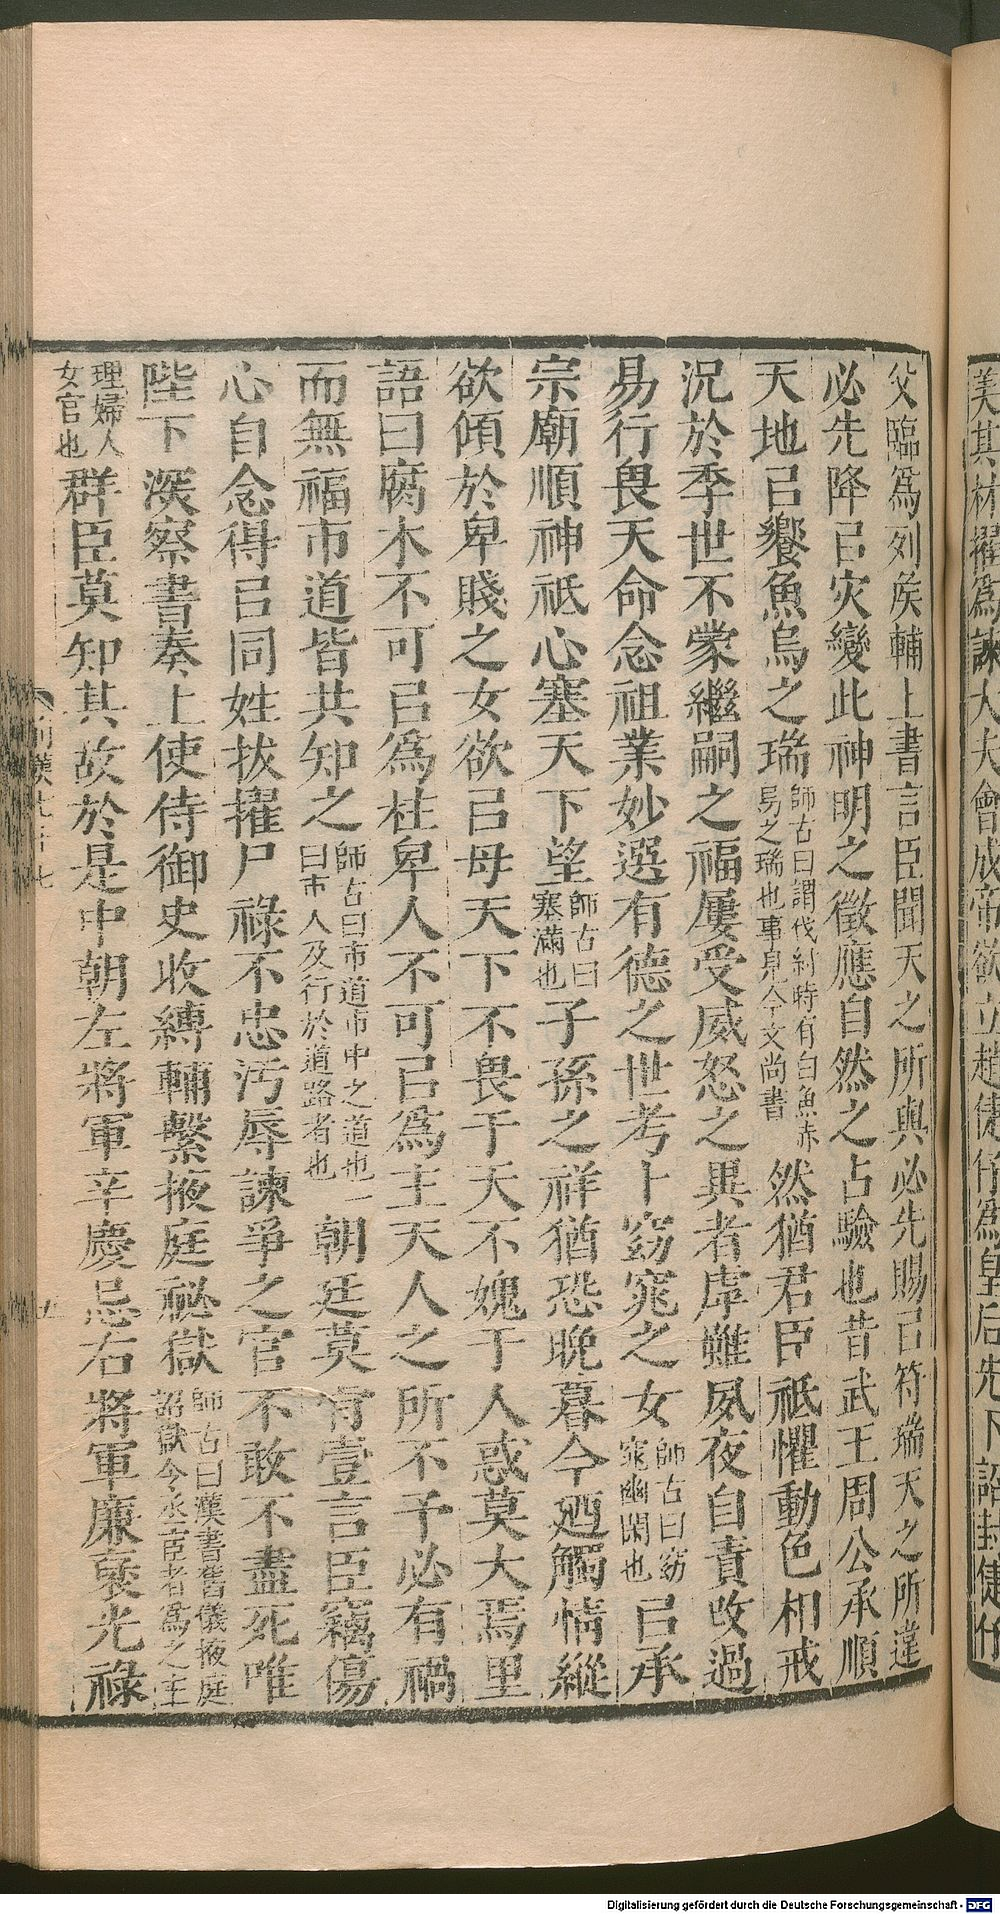 美其材擢爲諫大夫會成帝欲立趙倢伃爲皇后先下詔封倢伃
父臨爲列矦輔上書言臣聞天之所與必先賜㠯符瑞天之所違
必先降㠯灾變此神明之徵應自然之占驗也昔武王周公承順
天地㠯饗魚烏之瑞師古曰謂伐紂時有白魚赤烏之瑞也事見今文尚書然猶君臣祇懼動色相戒
況於季世不蒙繼嗣之福屢受威怒之異者虖雖夙夜自責改過
易行畏天命念祖業妙選有德之世考卜窈窕之女師古曰窈窕幽閑也㠯承
宗廟順神祇心塞天下望師古曰塞滿也子孫之祥猶恐晚暮今廼觸情縱
欲傾於卑賤之女欲㠯母天下不畏于天不媿于人惑莫大焉里
語曰腐木不可㠯爲柱卑人不可㠯爲主天人之所不予必有禍
而無福市道皆共知之師古曰市道市中之道也一曰市人及行於道路者也朝廷莫肯壹言臣竊傷
心自念得㠯同姓拔擢尸祿不忠汚辱諫爭之官不敢不盡死唯
陛下深察書奏上使侍御史收縛輔繫掖庭祕獄師古曰漢書舊儀掖庭詔獄令丞宦者爲之主
理婦人女官也群臣莫知其故於是中朝左將軍辛慶忌右將軍廉襃光祿
Digitalisierung gefördert durch die Deutsche Forschungsgemeinschaft - DFG